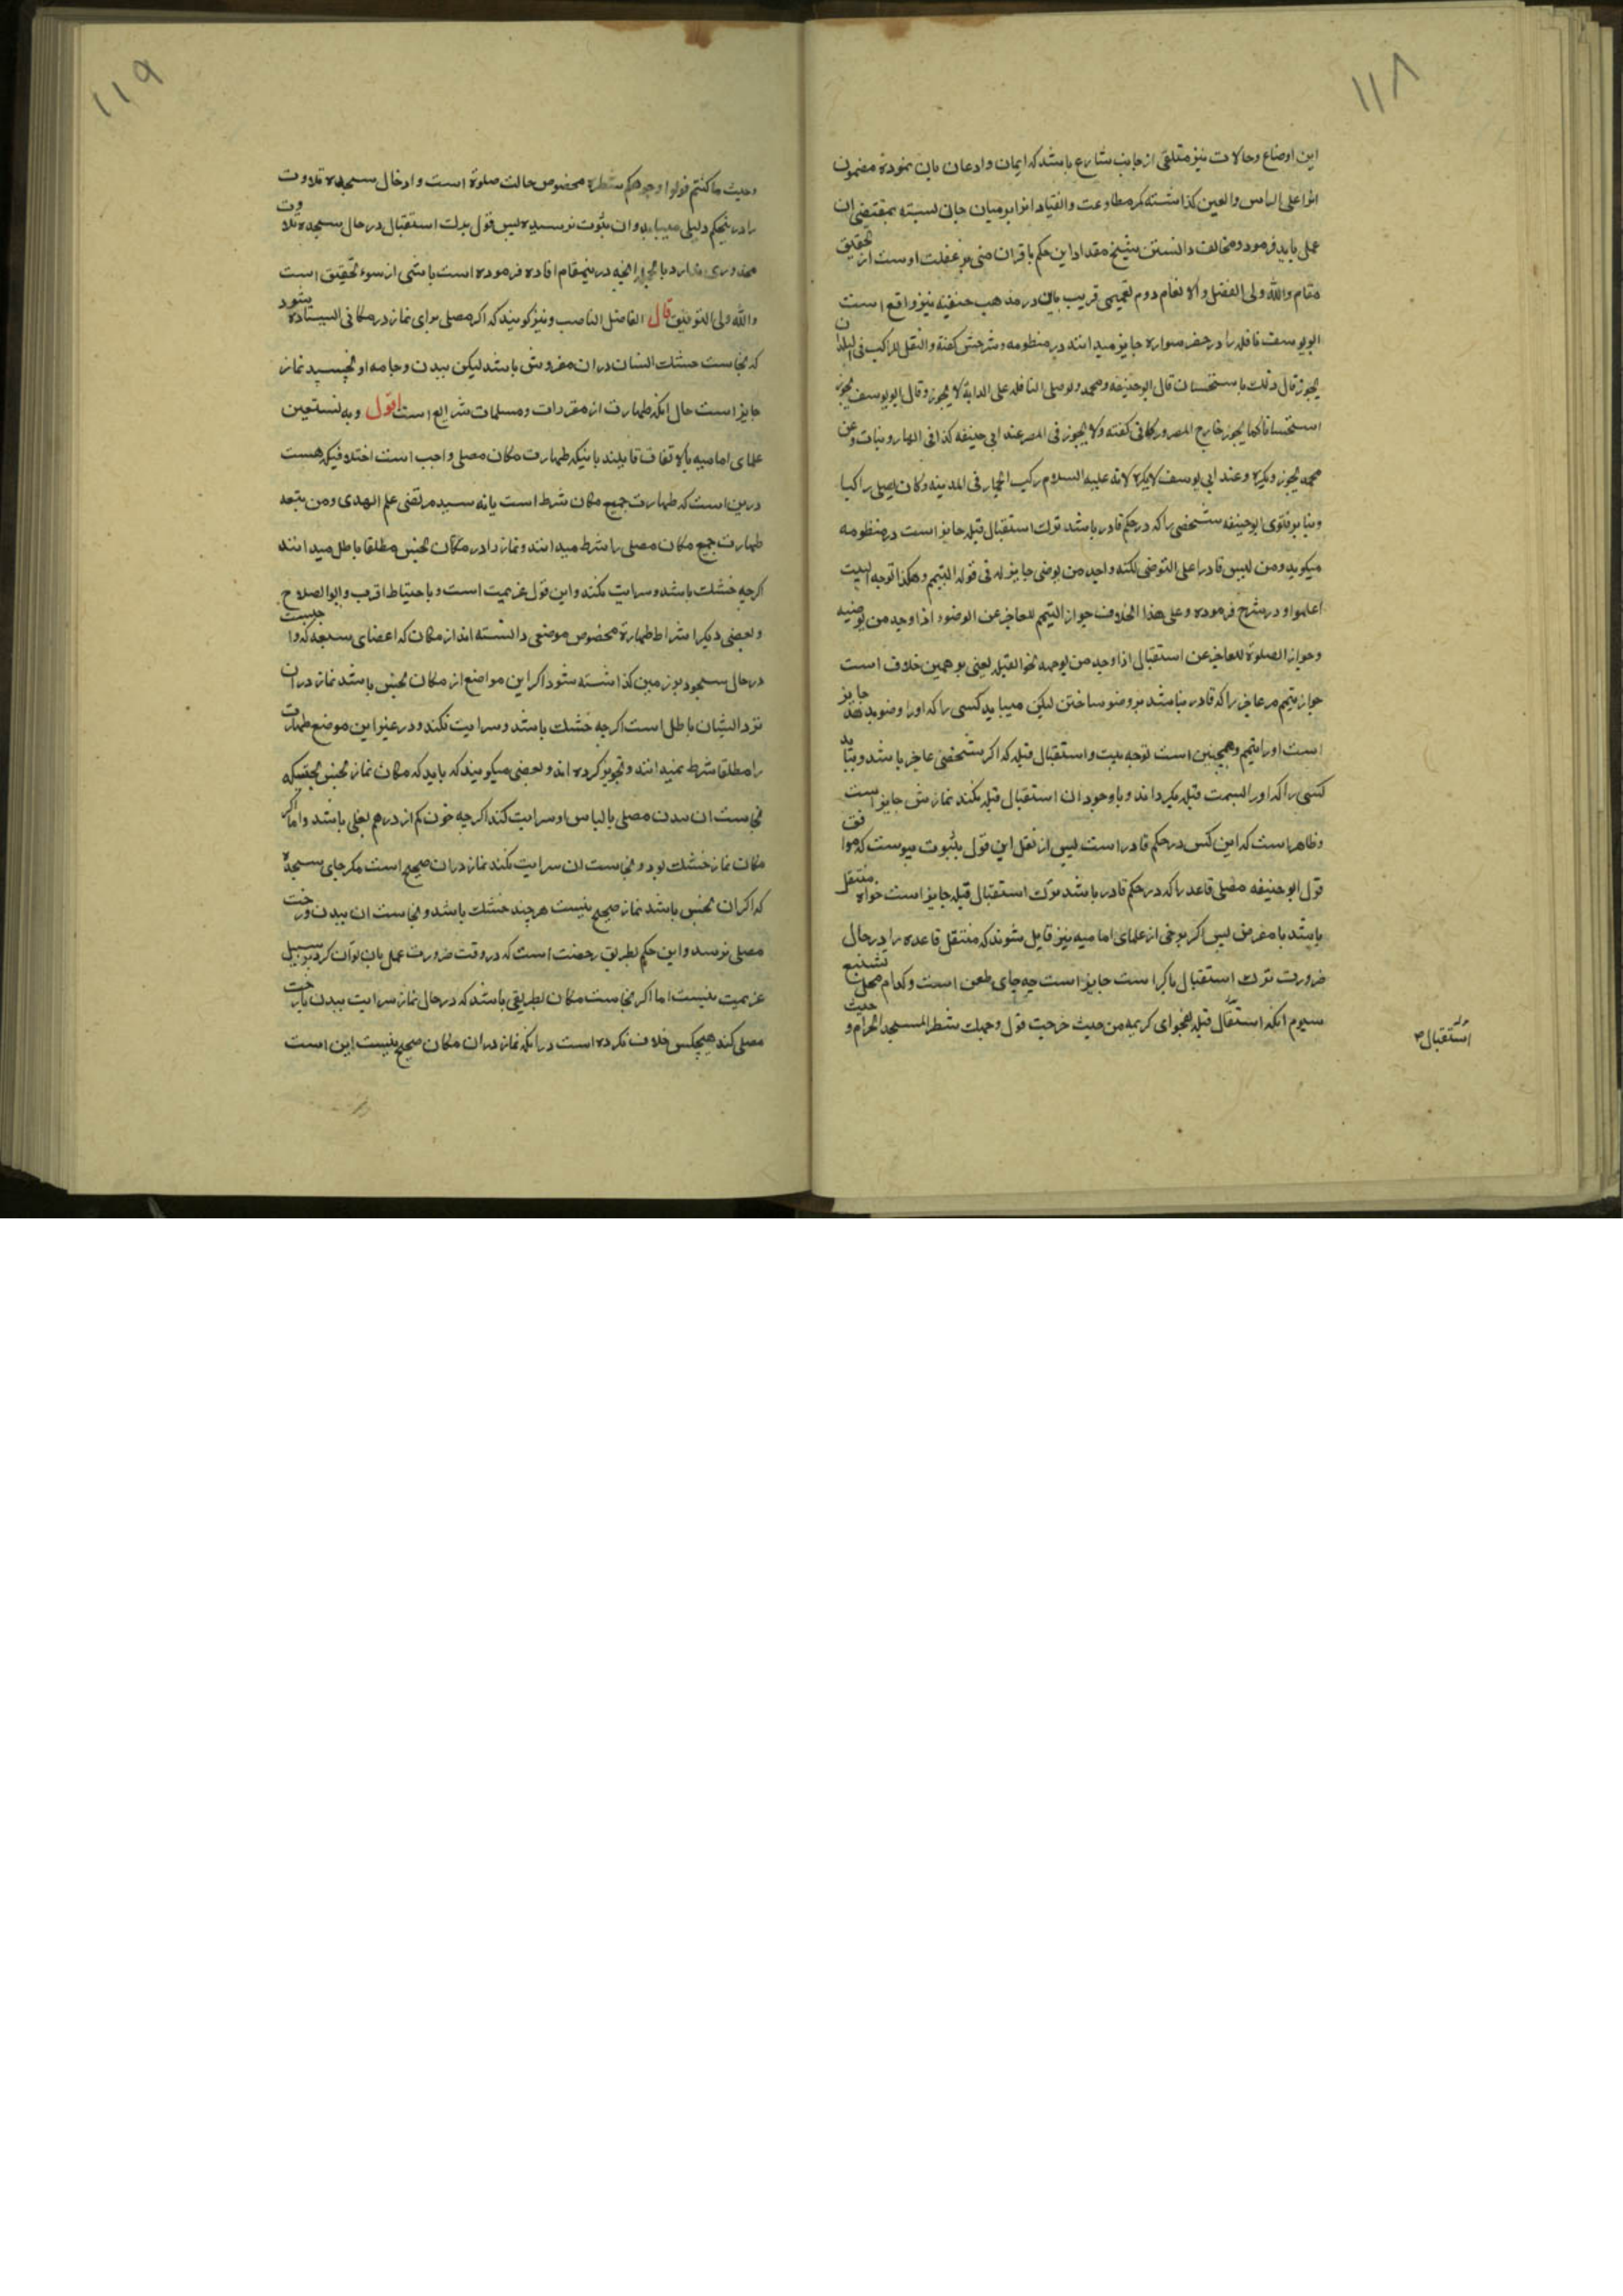 ١١٨
این اوضاع وحالات نیز متلقی از جانب شارع باشد که ایمان واذعان بان نموده مضمون
انرا علی الراس والعین گذاشته کمر مطاوعت وانقیاد انرا بر میان جان بسته بمقتضی ان
عمل باید فرمود ومخالفت دانستن شیخ مقداد این حکم با قران مبنی بر غفلت اوست از تحقیق
مقام والله ولی الفضل والانعام دوم تعمیمی قریب بان در مذهب حنفیه نیز واقع است
ابویوسف نافله را در حضر سواره جایز میدانند در منظومه وشرحش گفته والنفل للراکب فی البلدان
یجوز قال ذلک باستحسان قال ابوحنیفه ومحمد ولو صلی النافله علی الدابة لا یجوز وقال ابویوسف یجوز
استحسانا کما یجوز خارج المصر ودر کافی گفته ولا یجوز فی المصر عند ابی حنیفه کذا فی الهارونیات وعن
محمد یجوز ویکره وعند ابی یوسف لا یکره لانه علیه السلام رکب الحمار فی المدینه وکان یصلی راکبا
وبنا بر فتوی ابوحنیفه شخصی را که در حکم قادر باشد ترک استقبال قبله جایز است در منظومه
میکوید ومن لیس قادرا علی التوضی لکنه واجد من یوضی جایز له فی قوله التیمم وهکذا توجه البیت
اعلموا ودر شرح فرموده وعلی هذا الخلاف جواز التیمم للعاجز عن الوضوء اذا وجد من یوضیه
وجواز الصلوة للعاجز عن استقبال اذا وجد من یوجهه نحو القبله یعنی بر همین خلاف است
جواز تیمم مر عاجز را که قادر نباشد بر وضو ساختن لیکن مییابد کسی را که اورا وضو بدهد جایز
است اورا تیمم وهمچنین است توجه بیت واستقبال قبله که اکر شخصی عاجز باشد وبیابد
کسی را که اورا بسمت قبله بکرداند وباوجود ان استقبال قبله نکند نمازش جایز است
وظاهر است که این کس در حکم قادر است پس از نقل این قول بثبوت پیوست که موافق
قول ابوحنیفه مصلی قاعد را که در حکم قادر باشد ترک استقبال قبله جایز است خواه متنفل
باشد یا مفترض پس اکر برخی از علمای امامیه نیز قایل شوند که متنفل قاعده را در حال
ضرورت ترک استقبال یا کراست جایز است چه جای طعن است وکدام محل تشنیع
سیوم انکه استقبال قبله بفحوای کریمه من حیث خرجت فول وجهک شطر المسجد الحرام و
ترک استقبال
١١٩
وحیث ما کنتم فولوا وجوهکم شطره مخصوص حالت صلوة است وادخال سجده تلاوت
را درینحکم دلیلی میباید وان بثوت نرسیده پس قول بترک استقبال در حال سجده تلاوت
محذوری ندارد بالجمله انچه درینمقام افاده فرموده است ناشی از سوء تحقیق است
والله ولی التوفیق قال الفاضل الناصب ونیز کویند که اکر مصلی برای نماز در مکانی ایستاده شود
که نجاست خشک انسان در ان مفروش باشد لیکن ببدن وجامه او نچسپد نماز
جایز است حال انکه طهارت از مقررات ومسلمات شرایع است اقول وبه نستعین
علمای امامیه بالاتفاق قایلند باینکه طهارت مکان مصلی واجب است اختلافیکه هست
درین است که طهارت جمیع مکان شرط است یا نه سید مرتضی علم الهدی ومن تبعه
طهارت جمیع مکان مصلی را شرط میدانند ونماز را در مکان نجس مطلقا باطل میدانند
اکرچه خشک باشد وسرایت نکند واین قول عزیمیت است وباحتیاط اقرب وابوالصلاح
وبعضی دیکر اشراط طهارة مخصوص موضعی دانسته اند از مکان که اعضای سبعه که واجبست
در حال سجود بر زمین گذاشته شود اکر این مواضع از مکان نجس باشد نماز در ان
نزد ایشان باطل است اکرچه خشک باشد وسرایت نکند ودر غیر این موضع طهارت
را مطلقا شرط نمیدانند وتجویز کرده اند وبعضی میکویند که باید که مکان نماز نجس بحیثیتیکه
نجاست ان ببدن مصلی یا لباس او سرایت کند اکرچه خون کم از درهم بغلی باشد واما اکر
مکان نماز خشک بود ونجاست ان سرایت نکند نماز در ان صحیح است مکر جای سجده
که اکر ان نجس باشد نماز صحیح نیست هرچند خشک باشد ونجاست ان ببدن ورخت
مصلی نرسد واین حکم بطریق رخصت است که در وقت ضرورت عمل بان توان کرد بر سبیل
عزیمیت نیست اما اکر نجاست مکان بطریقی باشد که در حال نماز سرایت ببدن یا رخت
مصلی کند هیچکس خلاف نکرده است در انکه نماز در ان مکان صحیح نیست این است